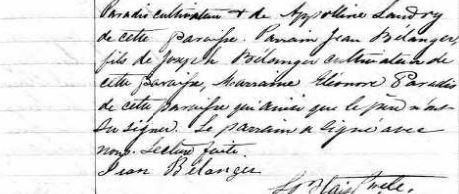 Paradis cultivateur & de Appolline Landry
de cette Paroisse. Parrain Jean Bélanger,
fils de Joseph Bélanger cultivateur de
cette paroisse, Marraine Eléonore Paradis
de cette paroisse qui ainsi que le père n'ont
su signer. Le parrain a signé avec
nous. Lecture faite.
Jean Bélanger